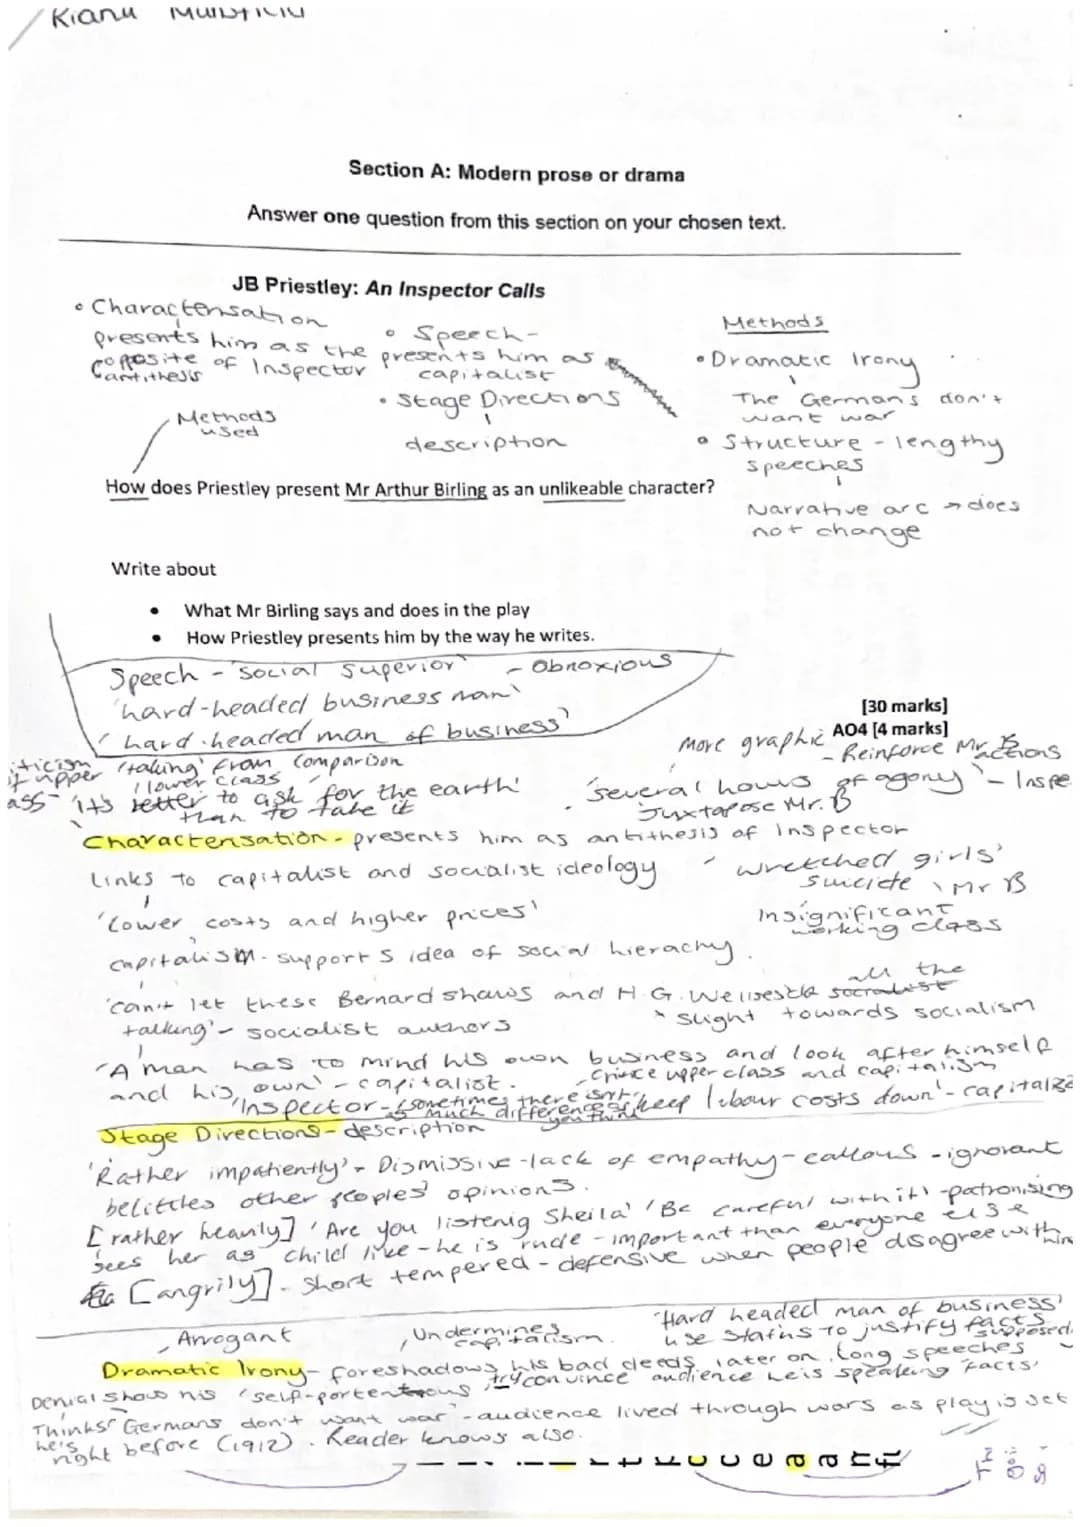 Kiana
Section A: Modern prose or drama
Answer one question from this section on your chosen text.
JB Priestley: An Inspector Calls
• Characterisation
presents him as the
opposite of Inspector
antithesis
• Speech-
presents him as
capitalist
• Stage Directions
description
Methods
used
Methods
• Dramatic Irony
The Germans don't
want war
• Structure - lengthy
speeches
Narrative arc → does
not change
How does Priestley present Mr Arthur Birling as an unlikeable character?
Write about
• What Mr Birling says and does in the play
• How Priestley presents him by the way he writes.
[30 marks]
AO4 [4 marks]
Speech - 'social superior' - Obnoxious
'hard-headed business man'
'hard-headed man of business'
'taking' from comparison
lower class
'it's better to ask for the earth'
than to take it
More graphic
- Reinforce Mr B's
actions
'several hours of agony' - Inspe
Juxtapose Mr. B
Characterisation - presents him as antithesis of Inspector
Links to capitalist and socialist ideology
'wretched girls'
suicide Mr B
Insignificant
working class
'Lower costs and higher prices'
capitalism - supports idea of social hierachy.
'can't let these Bernard shaws and H.G. Wellses
all the
talking' - socialist authors
slight towards socialism
'A man has to mind his own business and look after himself
and his own' - capitalist.
upper class and capitalism
Inspector - 'sometimes there isn't
as much difference as
you think'
'keep labour costs down' - capitalis
Stage Directions - description
'Rather impatiently' - Dismissive - lack of empathy - callous - ignorant
belittles other peoples' opinions.
[rather heavily] 'Are you listenig Sheila' 'Be careful with it' - patronising
sees her as child like - he is rude - important than everyone else
[angrily] - short tempered - defensive when people disagree with him
Arrogant
Undermines
capitalism.
'Hard headed man of business'
use status to justify facts
supposed
Dramatic Irony - foreshadows his bad deeds later on. Long speeches
try convince audience he is speaking 'facts'
Denial shows his
Thinks
he's
right
'Germans don't want war' - audience lived through wars as play is set
before (1912). Reader knows also.